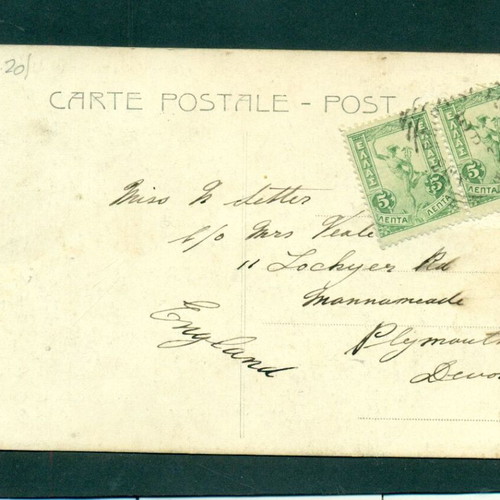 20/
CARTE POSTALE - POST
ΕΛΛΑΣ
5 5
ΛΕΠΤΑ
ΕΛΛΑΣ
5
ΛΕΠΤΑ
Miss N
c/o Mrs Veale
11 Lockyer Rd
Mannameade
Plymouth
Devon
England